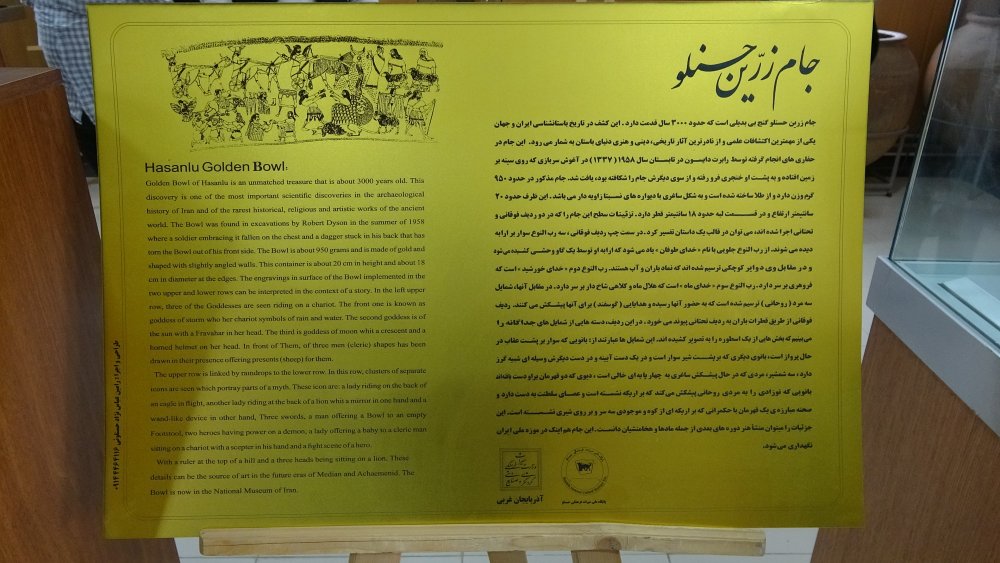 جام زرّین حسنلو
جام زرین حسنلو گنج بی بدیلی است که حدود ۳۰۰۰ سال قدمت دارد . این کشف در تاریخ باستانشناسی ایران و جهان
یکی از مهمترین اکتشافات علمی و از نادرترین آثار تاریخی، دینی و هنری دنیای باستان به شمار می رود. این جام در
حفاری های انجام گرفته توسط رابرت دایسون در تابستان سال ۱۹۵۸ (۱۳۳۷) در آغوش سربازی که روی سینه بر
زمین افتاده و به پشت او خنجری فرو رفته و از سوی دیگرش جام را شکافته بود، یافت شد. جام مذکور در حدود ۹۵۰
گرم وزن دارد و از طلا ساخته شده است و به شکل ساغری با دیواره های نسبتا زاویه دار می باشد. این ظرف حدود ۲۰
سانتیمتر ارتفاع و در قسمت لبه حدود ۱۸ سانتیمتر قطر دارد. تزئینات سطح این جام را که در دو ردیف فوقانی و
تحتانی اجرا شده اند، می توان در قالب یک داستان تفسیر کرد. در سمت چپ ردیف فوقانی، سه رب النوع سوار بر ارابه
دیده می شوند. از رب النوع جلویی با نام «خدای طوفان» یاد می شود که ارابه او توسط یک گاو وحشی کشیده می شود
و در مقابل وی دوایر کوچکی ترسیم شده اند که نماد باران و آب هستند. رب النوع دوم «خدای خورشید» است که
فروهری بر سر دارد. رب النوع سوم «خدای ماه» است که هلال ماه و کلاهی شاخ دار بر سر دارد. در مقابل آنها، شمایل
سه مرد (روحانی) ترسیم شده است که به حضور آنها رسیده و هدایایی (گوسفند) برای آنها پیشکش می کنند. ردیف
فوقانی از طریق قطرات باران به ردیف تحتانی پیوند می خورد. در این ردیف، دسته هایی از شمایل های جداگانه را
می‌بینیم که بخش هایی از یک اسطوره را به تصویر کشیده اند. این شمایل ها عبارتند از: بانویی که سوار بر پشت عقاب در
حال پرواز است، بانوی دیگری که بر پشت شیر سوار است و در یک دست آیینه و در دست دیگرش وسیله ای شبه گرز
دارد، سه شمشیر، مردی که در حال پیشکش ساغری به چهار پایه ای خالی است، دیوی که دو قهرمان بر او دست یافته‌اند
بانویی که نوزادی را به مردی روحانی پیشکش می‌کند که بر اریکه نشسته است و عصای سلطنت به دست دارد و
صحنه مبارزه ی یک قهرمان با حکمرانی که بر اریکه ای از کوه و موجودی سه سر و بر روی شیری نشسته است. این
جزئیات را میتوان منشأ هنر دوره های بعدی از جمله مادها و هخامنشیان دانست. این جام هم اینک در موزه ملی ایران
نگهداری می شود.
آذربایجان غربی
پایگاه ملی میراث فرهنگی حسنلو
Hasanlu Golden Bowl:
Golden Bowl of Hasanlu is an unmatched treasure that is about 3000 years old. This
discovery is one of the most important scientific discoveries in the archaeological
history of Iran and of the rarest historical, religious and artistic works of the ancient
world. The Bowl was found in excavations by Robert Dyson in the summer of 1958
where a soldier embracing it fallen on the chest and a dagger stuck in his back that has
torn the Bowl out of his front side. The Bowl is about 950 grams and is made of gold and
shaped with slightly angled walls. This container is about 20 cm in height and about 18
cm in diameter at the edges. The engravings in surface of the Bowl implemented in the
two upper and lower rows can be interpreted in the context of a story. In the left upper
row, three of the Goddesses are seen riding on a chariot. The front one is known as
goddess of storm who her chariot symbols of rain and water. The second goddess is of
the sun with a Fravahar in her head. The third is goddess of moon whit a crescent and a
horned helmet on her head. In front of Them, of three men (cleric) shapes has been
drawn in their presence offering presents (sheep) for them.
The upper row is linked by raindrops to the lower row. In this row, clusters of separate
icons are seen which portray parts of a myth. These icon are: a lady riding on the back of
an eagle in flight, another lady riding at the back of a lion whit a mirror in one hand and a
wand-like device in other hand, Three swords, a man offering a Bowl to an empty
Footstool, two heroes having power on a demon, a lady offering a baby to a cleric man
sitting on a chariot with a scepter in his hand and a fight scene of a hero.
With a ruler at the top of a hill and a three heads being sitting on a lion. These
details can be the source of art in the future eras of Median and Achaemenid. The
Bowl is now in the National Museum of Iran.
طراحی و اجرا : رامین عباس نژاد حسنلویی ۰۹۱۴۴۴۶۴۱۱۶